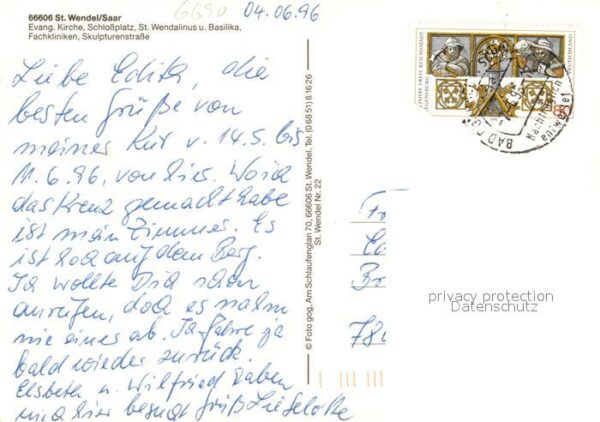 6690
04.06.96
66606 St. Wendel/Saar
Evang. Kirche, Schloßplatz, St. Wendalinus u. Basilika,
Fachkliniken, Skulpturenstraße
Liebe Edith, die
besten Grüße von
meiner Kur v. 14.5. bis
11.6.96, von hier. Wo ich
das Kreuz gemacht habe
ist mein Zimmer. Es
ist hoch auf dem Berg.
Ich wollte Dich schon
anrufen, doch es nahm
nie eines ab. Ich fahre ja
bald wieder zurück.
Elsbeth u. Wilfried haben
mich hier besucht Gruß Lieselotte
© Foto gog, Am Schlaufenglan 70, 66606 St. Wendel, Tel. (0 68 51) 8 16 26
St. Wendel Nr. 22
DEUTSCHLAND
80
BAD
Fr
Br
780
privacy protection
Datenschutz